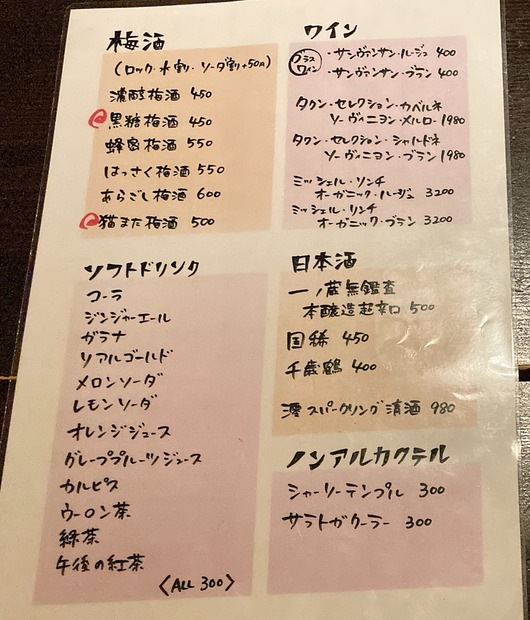 梅酒
(ロック・水割・ソーダ割+50円)
濃醇梅酒 450
黒糖梅酒 450
蜂蜜梅酒 550
はっさく梅酒 550
あらごし梅酒 600
猫また梅酒 500
ソフトドリンク
コーラ
ジンジャーエール
ガラナ
リアルゴールド
メロンソーダ
レモンソーダ
オレンジジュース
グレープフルーツジュース
カルピス
ウーロン茶
緑茶
午後の紅茶
〈ALL 300〉
ワイン
グラスワイン
・サンヴァンサン・ルージュ 400
・サンヴァンサン・ブラン 400
タウン・セレクション・カベルネ
ソーヴィニヨン・メルロー 1980
タウン・セレクション・シャルドネ
ソーヴィニヨン・ブラン 1980
ミッシェル・リンチ
オーガニック・ルージュ 3200
ミッシェル・リンチ
オーガニック・ブラン 3200
日本酒
一ノ蔵無鑑査
本醸造超辛口 500
国稀 450
千歳鶴 400
澪スパークリング清酒 980
ノンアルカクテル
シャーリーテンプル 300
サラトガクーラー 300